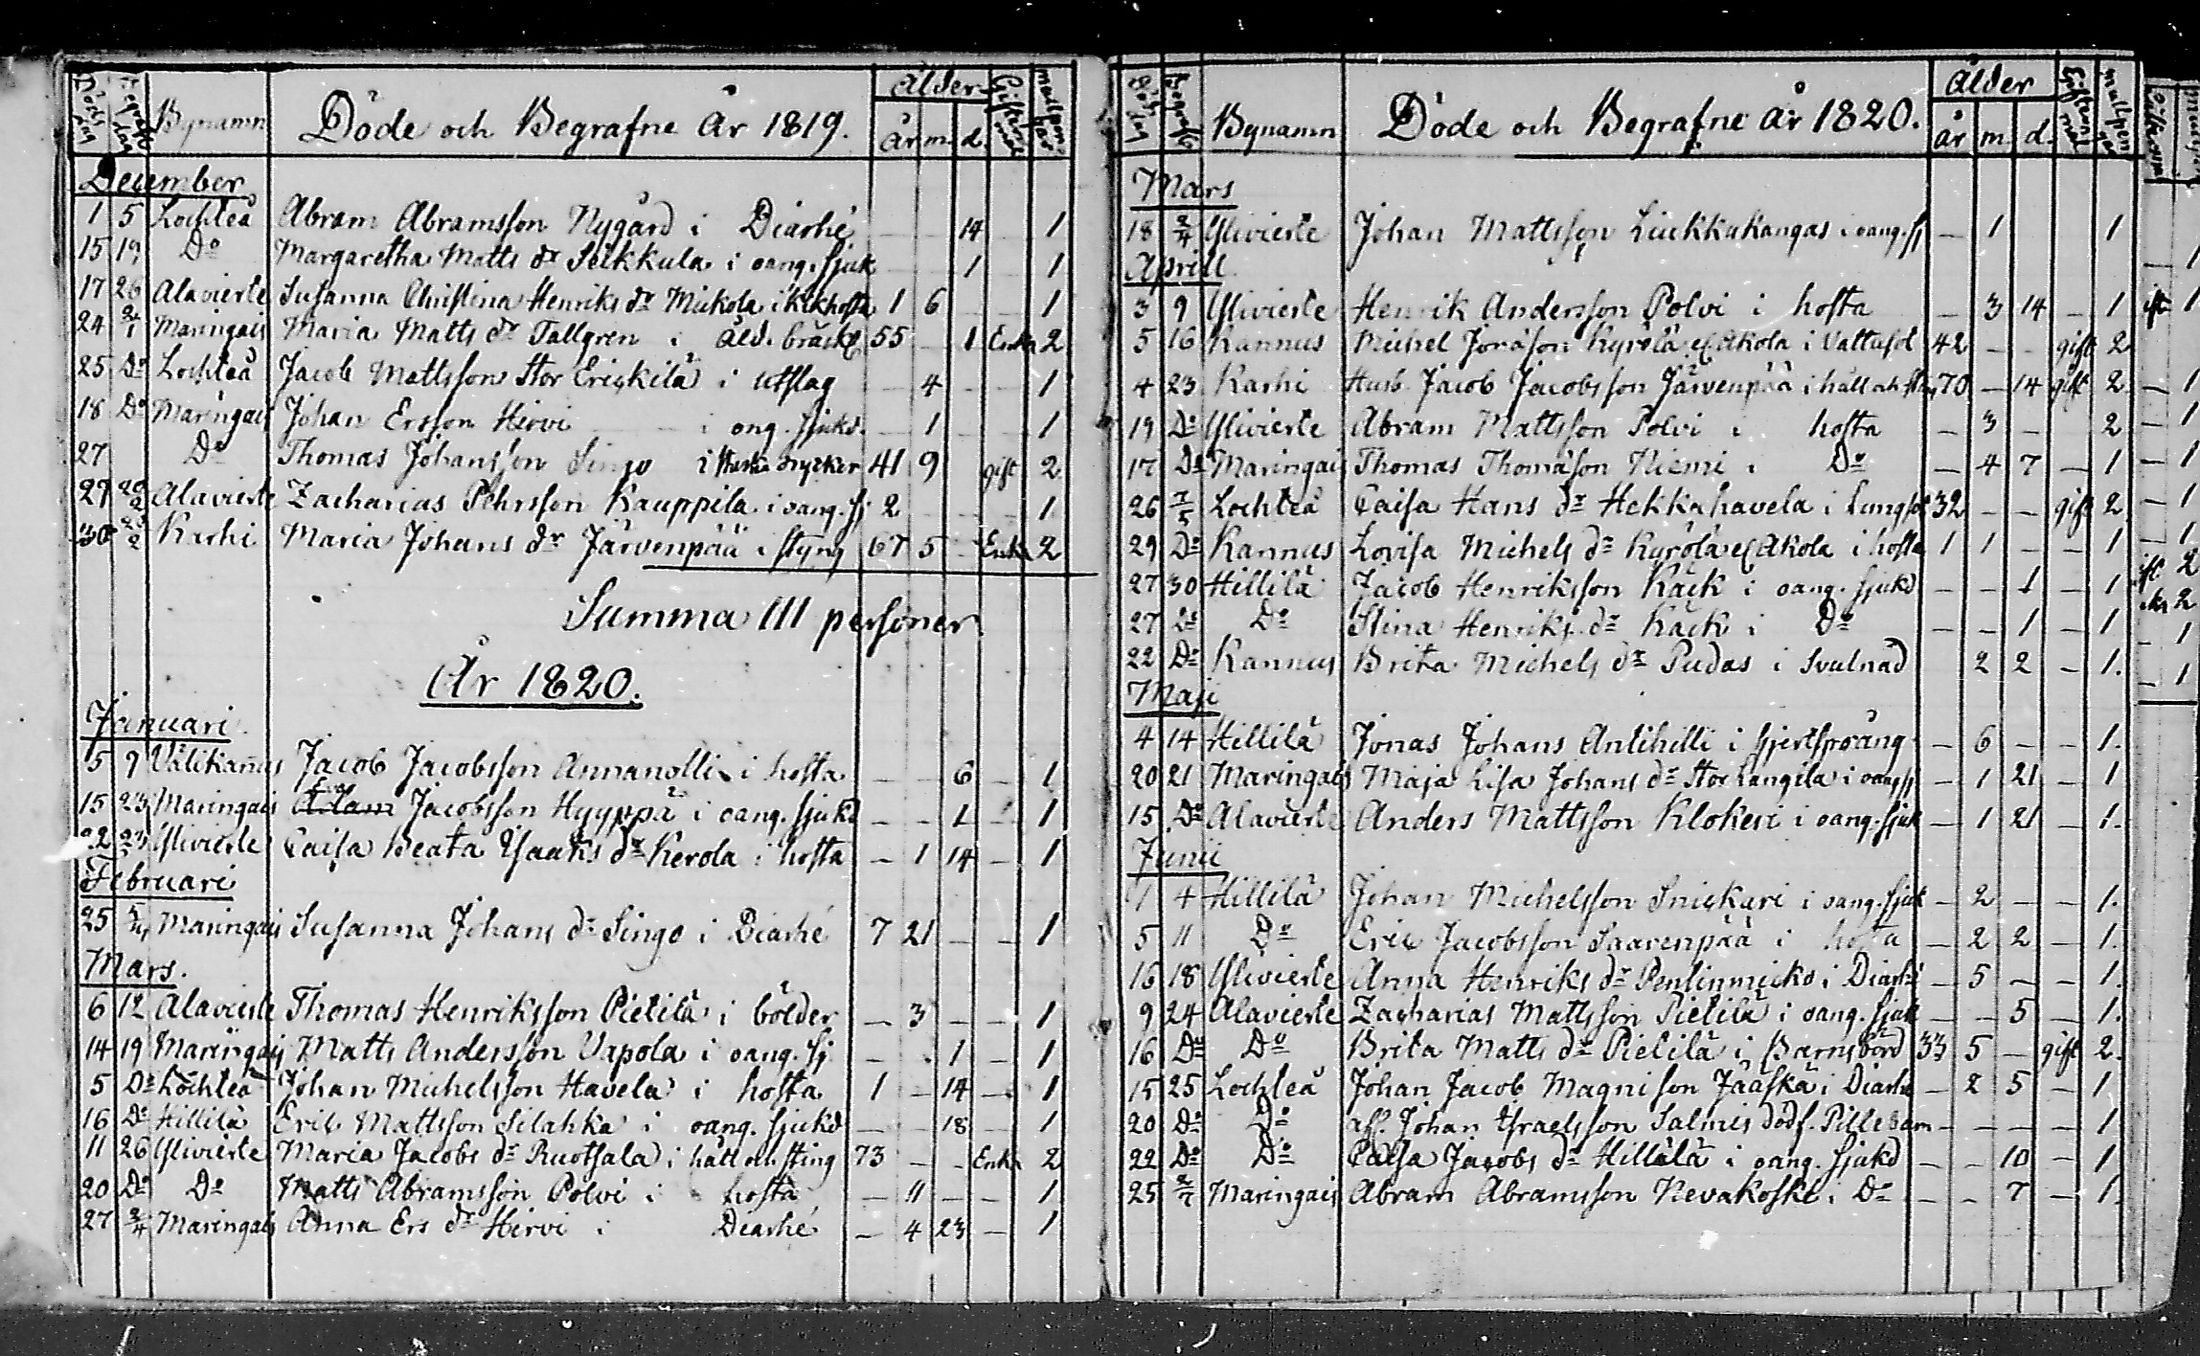 Döds dag Begrafn. dag Bynamn Döde och Begrafne År 1819. Ålder år m. d. Giftermål
December
1 5 Lochteå Abram Abramsson Nygård i Diarhé 14 1
15 19 Do Margaretha Matts dr Seikkula i oang. sjuk 1 1
17 26 Alavierle Susanna Christina Henriks dr Mickola i kikhosta 1 6 1
24 2/1 Maringais Maria Matts dr Tallgren i Åld. bräckl 55 1 Enka 2
25 Do Lochteå Jacob Mattsson Stor Erickilä i utslag 4 1
18 Do Maringais Johan Ersson Hirvi i ong. sjukd. 1 1
27 Do Thomas Johansson Singo i starka drycker 41 9 gift 2
29 Alavierle Zacharias Pehrsson Kauppila i oang. sj 2 1
30 Karhi Maria Johans dr Järvenpää i styng 67 5 Enka 2
Summa 111 personer.
År 1820.
Januari.
5 9 Välikañus Jacob Jacobsson Annanolli i hosta 6 1
15 23 Maringais Adam Jacobsson Hyyppä i oang. sjukd – – 1 – 1
22 Ylivierle Caisa Beata Ysaaks dr Kerola i hosta – 1 14 – 1
Februari
25 Maringais Susanna Johans dr Singo i Diarhé 7 21 – – 1
Mars.
6 12 Alavierle Thomas Henriksson Pietilä i bölder – 3 – – 1
14 19 Maringais Matts Andersson Vapola i oang. sj – . 1 – 1
5 Do Lochteå Johan Michelsson Havela i hosta 1 – 14 – 1
16 Do Hillilä Eric Mattsson Silahka i oang. sjukd – – 18 – 1
11 26 Ylivierle Maria Jacobs dr Ruotsala i håll och sting 73 – – Enka 2
20 Do Do Matts Abramsson Polvi i hosta – 11 – – 1
27 2/4 Maringais Anna Ers dr Hirvi i Diarhé – 4 23 – 1
Bynamn Döde och Begrafne År 1820. Ålder år m. d.
Mars
18 2/4 Ylivierle Johan Mattsson Liukkukangas i oang. sj – 1 1
Aprill
3 9 Ylivierle Henrik Andersson Polvi i hosta – 3 14 – 1
5 16 Kannus Michel Jonasson Kyrölä el Akola i Vattusot 42 – – gift 2
4 23 Karhi Husb. Jacob Jacobsson Järvenpää i håll och sting 70 – 14 gift 2
19 Do Ylivierle Abram Mattsson Polvi i hosta – 3 – 2
17 Do Maringais Thomas Thomasson Niemi i Do – 4 7 – 1
26 7/5 Lochteå Caisa Hans dr Hekkahavela i Lungsot 32 – – gift 2
29 Do Kannus Lovisa Michels dr Kyrölä el Akola i hosta 1 1 – – 1
27 30 Hillilä Jacob Henriksson Käck i oang. sjukd – – 1 – 1
27 Do Do Stina Henriks dr Käck i Do – – 1 – 1
22 Do Kannus Brita Michels dr Pudas i Svulnad 2 2 – 1.
Maji
4 14 Hillilä Jonas Johans Antihilli i hjertsprång – 6 – – 1.
20 21 Maringais Maja Lisa Johans dr Stor Langila i oang sj – 1 21 – 1
15 Do Alavierle Anders Mattsson Klokeri i oang. sjuk – 1 21 – 1.
Junii
1 4 Hillilä Johan Michelsson Snickari i oang. sjuk – 2 – – 1.
5 11 Do Eric Jacobsson Saarenpää i hosta – 2 2 – 1.
16 18 Ylivierle Anna Henriks dr Pentinmicko i Diarhé – 5 – – 1.
9 24 Alavierle Zacharias Mattsson Pietilä i oang. sjuk – – 5 – 1.
16 Do Do Brita Matts dr Pietilä i Barnsbörd 33 5 – gift 2.
15 25 Lochteå Johan Jacob Magnisson Jääskä i Diarhe – 2 5 – 1
20 Do Do Johan Ysraelsson Salmis dödf. Pillebarn – – – – 1
22 Do Do Caisa Jacobs dr Hillilä i oang. sjukd – – 10 – 1
25 2/7 Maringais Abram Abramsson Nevakoski i Do – – 7 – 1.